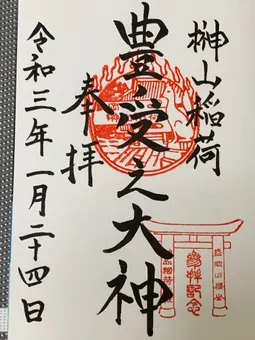 榊山稲荷
豊受之大神
奉拝
令和三年一月二十四日
参拝記念